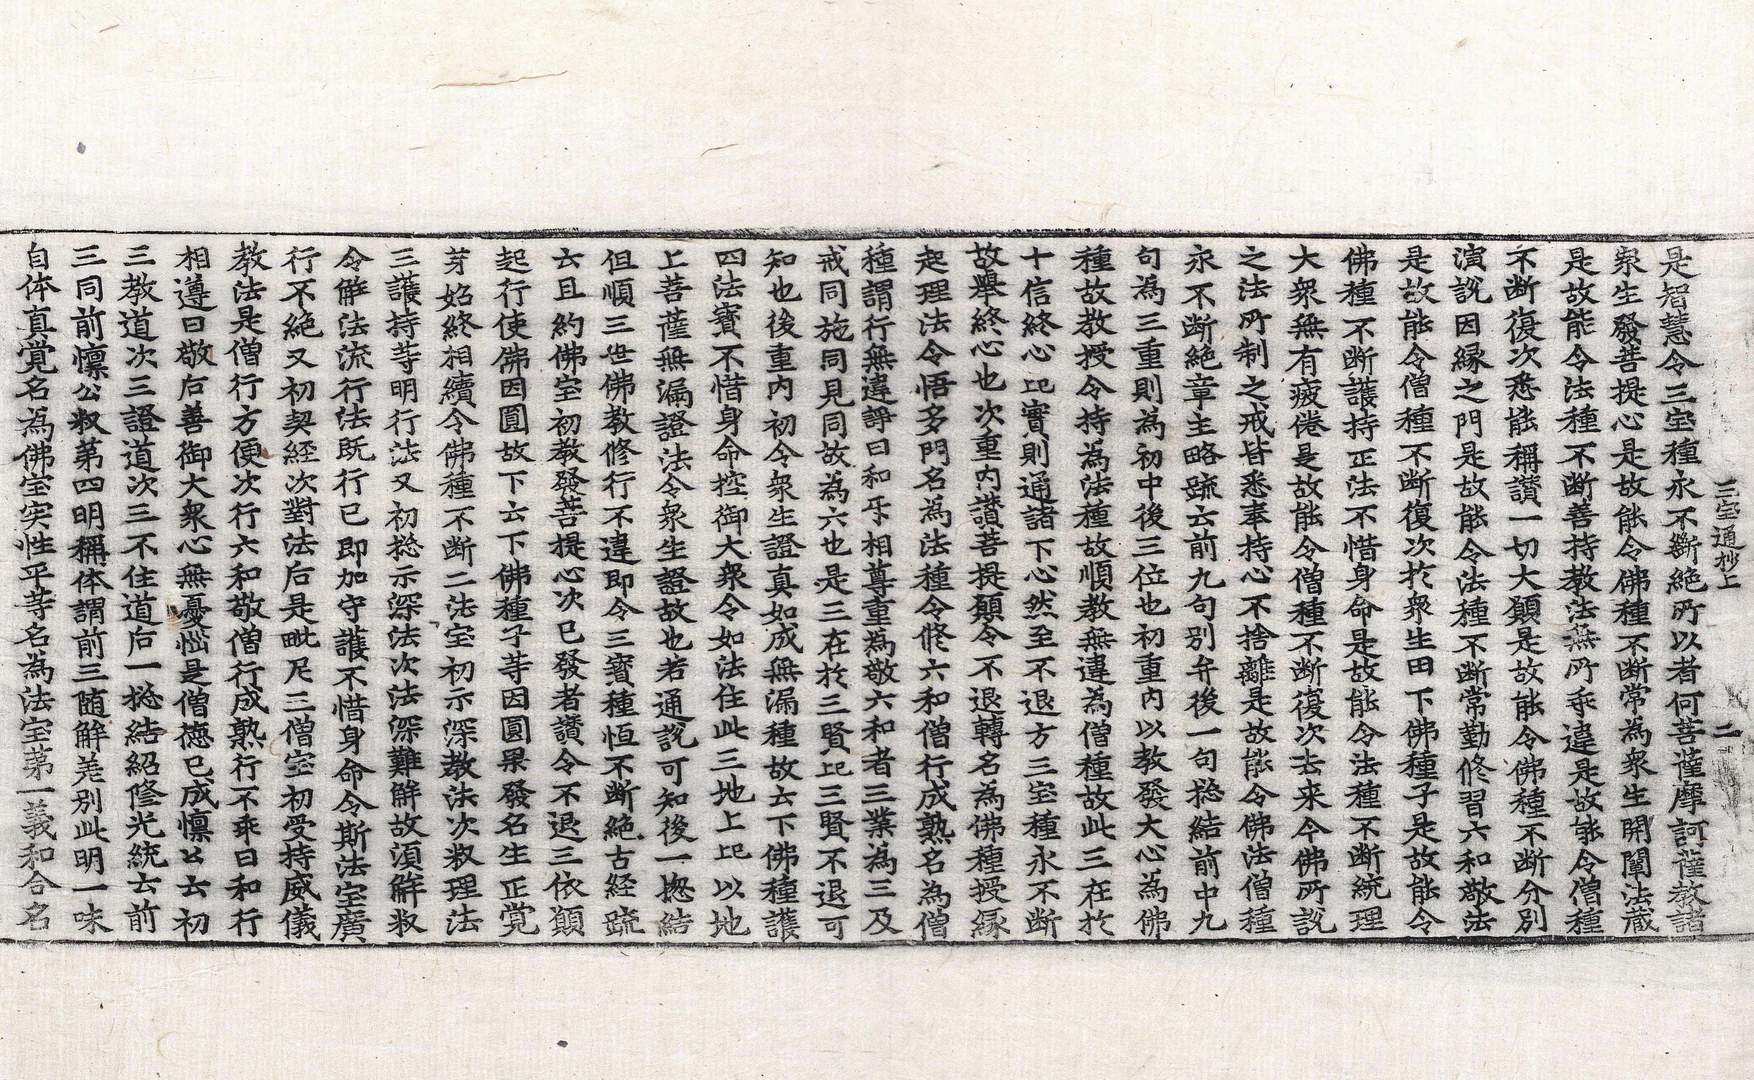 三宝通抄上
二
是智慧令三宝種永不斷絶所以者何菩薩摩訶薩教諸
衆生發菩提心是故能令佛種不断常為衆生開闡法蔵
是故能令法種不断善持教法無所乖違是故能令僧種
不断復次悉能稱讃一切大願是故能令佛種不断分別
演説因縁之門是故能令法種不断常勤修習六和敬法
是故能令僧種不断復次於衆生田下佛種子是故能令
佛種不断護持正法不惜身命是故能令法種不断統理
大衆無有疲倦是故能令僧種不断復次去来今佛所説
之法所制之戒皆悉奉持心不捨離是故能令佛法僧種
永不断絶章主略䟽云前九句別弁後一句捴結前中九
句為三重則為初中後三位也初重内以教發大心為佛
種故教授令持為法種故順教無違為僧種故此三在於
十信終心㠯實則通諸下心然至不退方三宝種永不断
故舉終心也次重内讃菩提願令不退轉名為佛種授縁
起理法令悟多門名為法種令修六和僧行成熟名為僧
種謂行無違諍曰和乐相尊重為敬六和者三業為三及
戒同施同見同故為六也是三在於三賢㠯三賢不退可
知也後重内初令衆生證真如成無漏種故云下佛種護
四法寳不惜身命控御大衆令如法住此三地上㠯以地
上菩薩無漏證法令衆生證故也若通説可知後一捴結
但順三世佛教修行不違即令三寳種恒不断絶古経䟽
云且約佛宝初教發菩提心次已發者讃令不退三依願
起行使佛因圓故下云下佛種子等因圓果發名生正覚
芽始終相續令佛種不断二法宝初示深教法次敎理法
三護持等明行法又初捴示深法次法深難解故湏解敎
令解法流行法既行已即加守護不惜身命令斯法宝廣
行不絶又初契経次對法后是毗尼三僧宝初受持威儀
教法是僧行方便次行六和敬僧行成熟行不乖曰和行
相遵曰敬后善御大衆心無憂悩是僧徳已成懍公云初
三教道次三證道次三不住道后一捴結紹隆光統云前
三同前懍公敎第四明稱体謂前三随解差別此明一味
自体真覚名為佛宝実性平等名為法宝第一義和合名